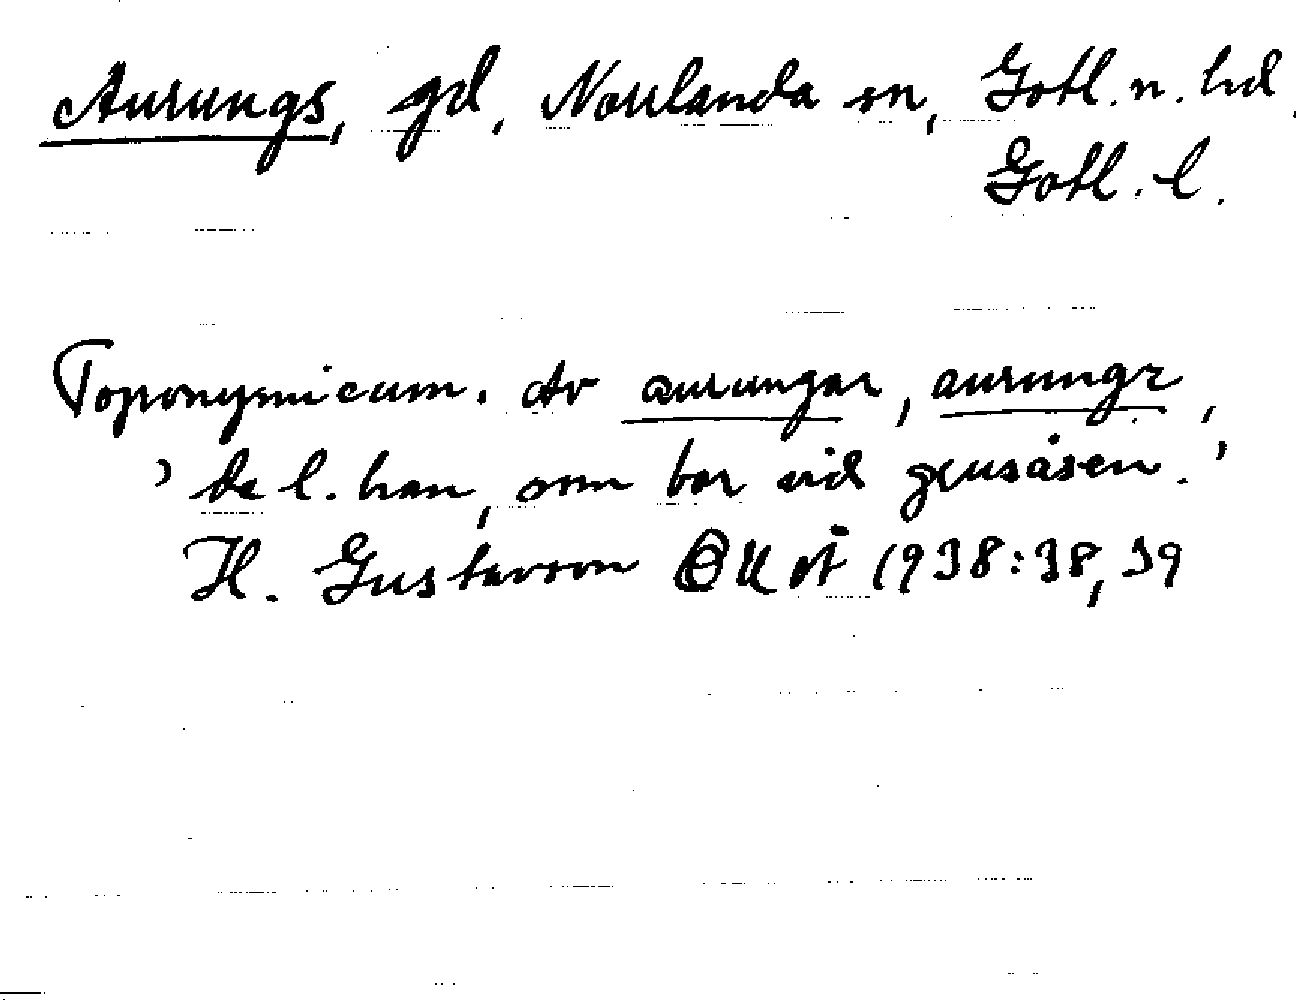 Aurungs, gd, Norrlanda sn, Gotl. n. hd.
Gotl. l.
Toponymicum. Av aurungar, aurungr,
'de l. han, som bor vid grusåsen.'
H. Gustavson 1938:38, 39